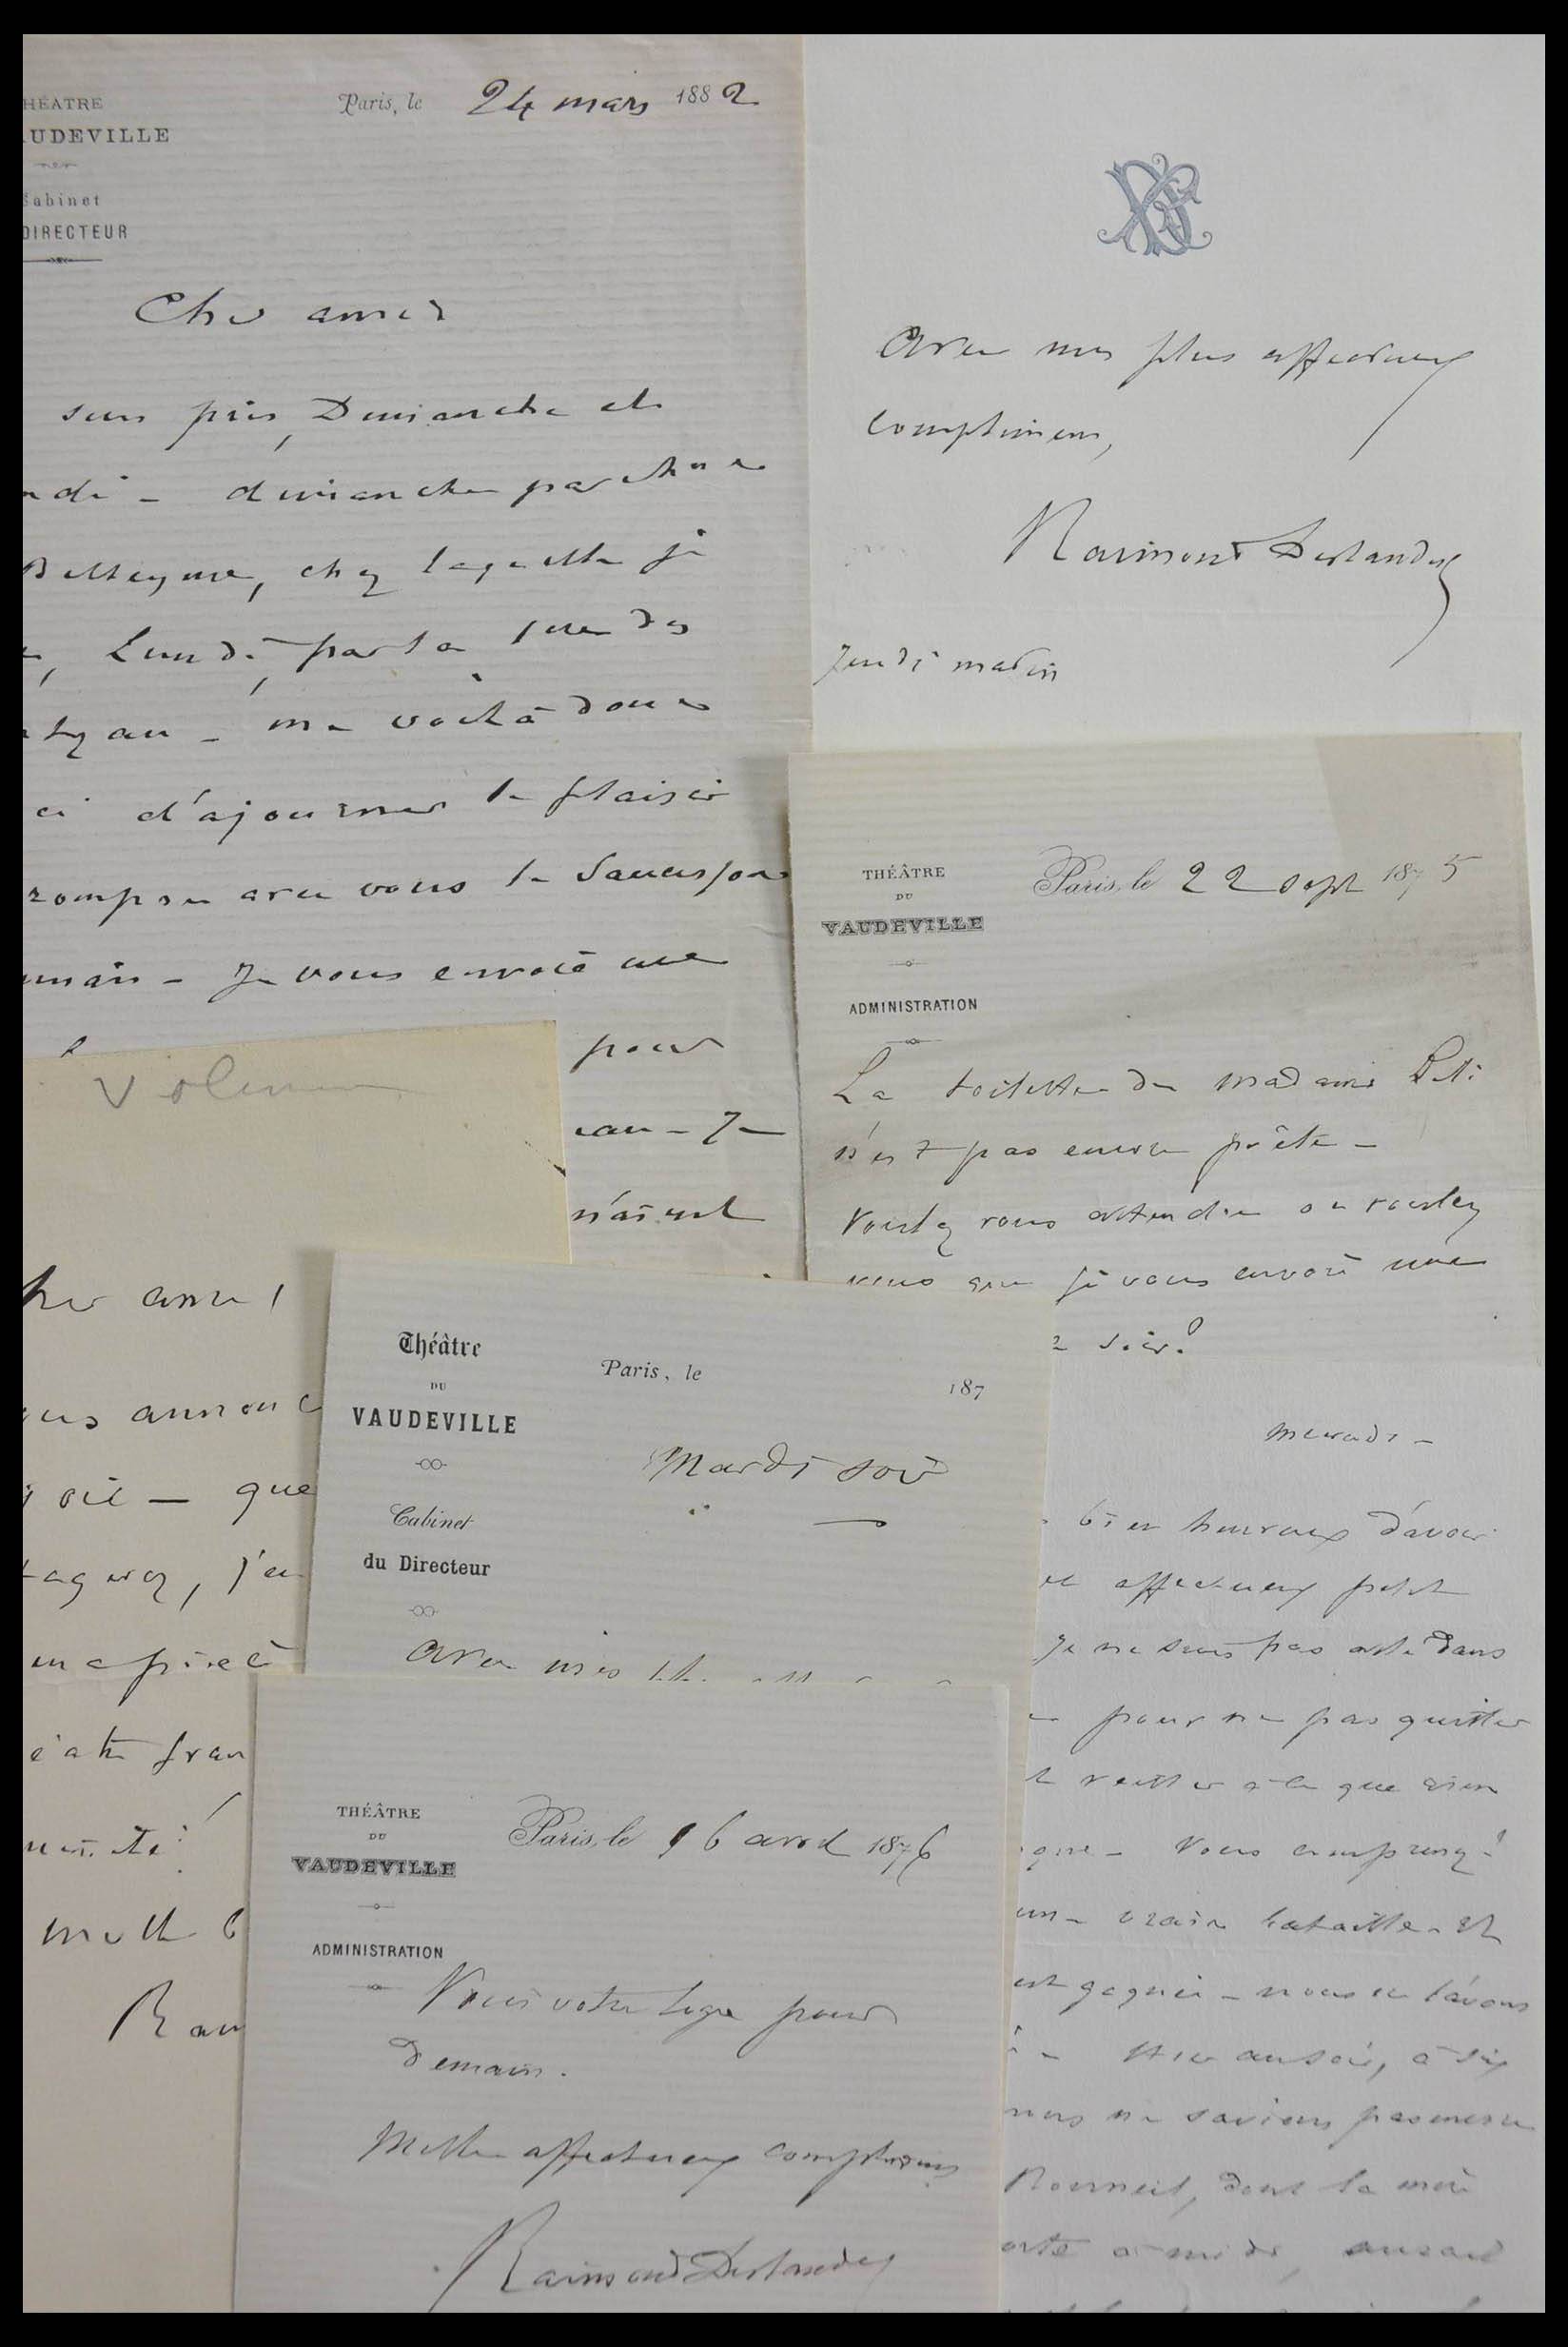 HÉATRE
AUDEVILLE
Cabinet
DIRECTEUR
Paris, le 24 mars 1882
Cher ami
suis pris, Dimanche et
ndi - dimanche par
Belleyme, chez laquelle je
Lundi, par la 1ere des
me voilà donc
d'ajourner le plaisir
rompre avec vous le saucisson
Je vous envoie une
pour
n'aient
Avec mes plus affectueux
complimens,
Raimond Deslandes
Jeudi matin
THÉÂTRE
DU
VAUDEVILLE
ADMINISTRATION
Paris, le 22 sept 1875
La toilette de madame
n'est pas encore prête -
Voulez vous attendre ou voulez
vous que je vous envoie une
soir?
her ami
ous annonce
oie - que
tagerez, j'en
une pièce
éatre fran
mille
Raim
Théâtre
DU
VAUDEVILLE
Cabinet
du Directeur
Paris, le 187
Mardi soir
Avec mes
mercredi -
bien heureux d'avoir
affectueux petit
Je ne suis pas allé dans
pour ne pas quitter
veiller à ce que rien
Vous comprenez!
vraie bataille - Et
est gagnée - nous en l'avons
Hier au soir, à six
nous ne savions pas encore
dont la mère
à midi
THÉÂTRE
DU
VAUDEVILLE
ADMINISTRATION
Paris, le 16 avril 1876
Voici votre loge pour
demain.
Mille affectueux complimens
Raimond Deslandes